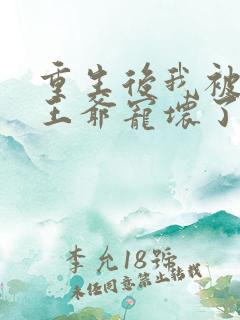 重生後我被
王爺寵壞了
李允18號
未經同意禁止轉載